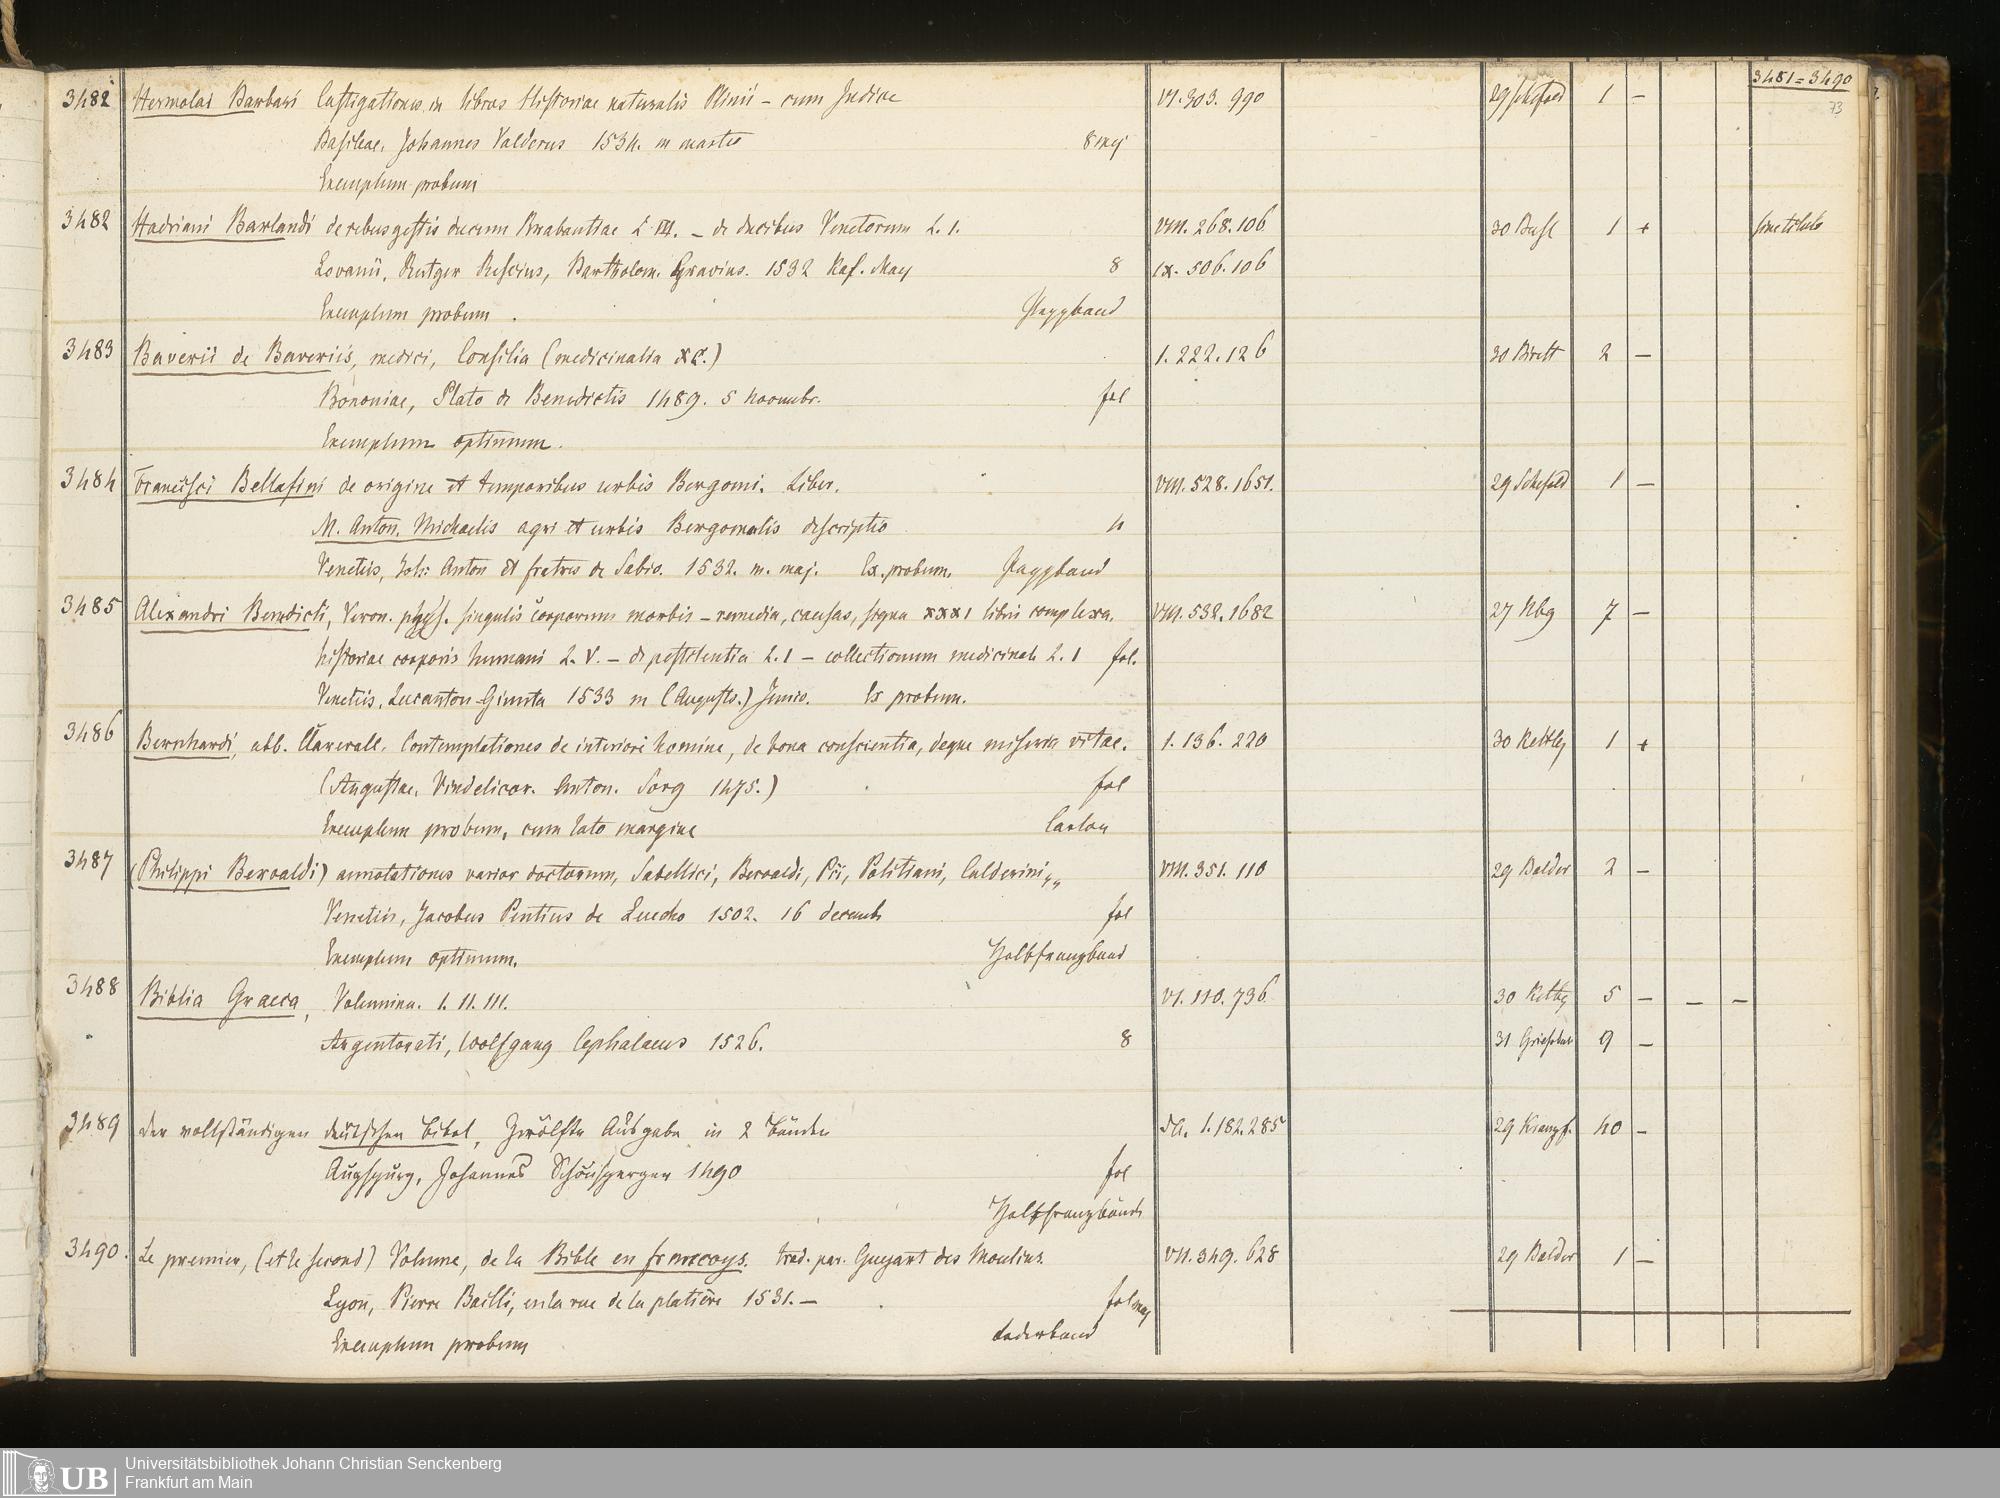 3481=3490
73
3482 Hermolai Barbari Castigationes in libros Historiae naturalis Plinii - cum Indice VI. 303. 990 29 1 -
Basileae, Johannes Valderus 1534. m martio 8 maj
Exemplum probum
3482 Hadriani Barlandi de rebus gestis ducum Brabantiae L III. - de ducibus Venetorum L. 1. VIII. 268. 106 30 Basl 1 +
Lovanii, Rutger Rescius, Bartholom. Gravius. 1532 Kal. May 8 IX. 506. 106
Exemplum probum. Pappband
3483 Baverii de Baveriis, medici, Consilia (medicinalia XC.) 1. 222. 126 30 Birett 2 -
Bononiae, Plato de Benedictis 1489. 5 novembr. fol
Exemplum optimum.
3484 Francisci Bellafini de origine et temporibus urbis Bergomi. Liber. VIII. 528. 1651. 29 1 -
M. Anton. Michaelis agri et urbis Bergomatis descriptio 4
Venetiis, Joh: Anton et fratres de Sabio. 1532. m. maj. Ex. probum. Pappband
3485 Alexandri Benedicti, Veron. phys. singulis corporum morbis - remedia, causas, signa XXXI libris complexa. VIII. 532. 1682 27 Nbg 7 -
historiae corporis humani L. V. - de pestilentia L. 1 - collectionum medicinale L. 1 fol.
Venetiis, Lucanton Giunta 1533 m (Augusto.) Junio. Ex probum.
3486 Bernhardi, abb. Claravall. Contemplationes de interiori homine, de bona conscientia, deque miseria vitae. 1. 136. 220 30 1 +
(Augustae. Vindelicor. Anton. Sorg 1475.) fol
Exemplum probum, cum lato margine Carton
3487 (Philippi Beroaldi) annotationes varior doctorum, Sabellici, Beroaldi, Pii, Politiani, Calderini,, VIII. 351. 110 29 Balder 2 -
Venetiis, Jacobus Pentius de Leucho 1502. 16 decemb fol
Exemplum optimum. Halbfranzband
3488 Biblia Graeca, Volumina. I. II. III. VI. 110. 736 30 5 - - -
Argentorati, Wolfgang Cephalaeus 1526. 8 31 9 -
3489 Der vollständigen deutschen Bibel, Zwölfte Ausgabe in 2 Bänden 1. 182. 285 29 40 -
Augspurg, Johannes Schönsperger 1490 fol
Halbfranzbände
3490. Le premier, (et le second) Volume, de la Bible en francoys. trad. par. Guyart des Moulins. VII. 349. 628 29 Balder 1 -
Lyon, Pierre Bailli, en la rue de la platiere 1531. - fol maj
Exemplum probum Lederband
UB Universitätsbibliothek Johann Christian Senckenberg
Frankfurt am Main